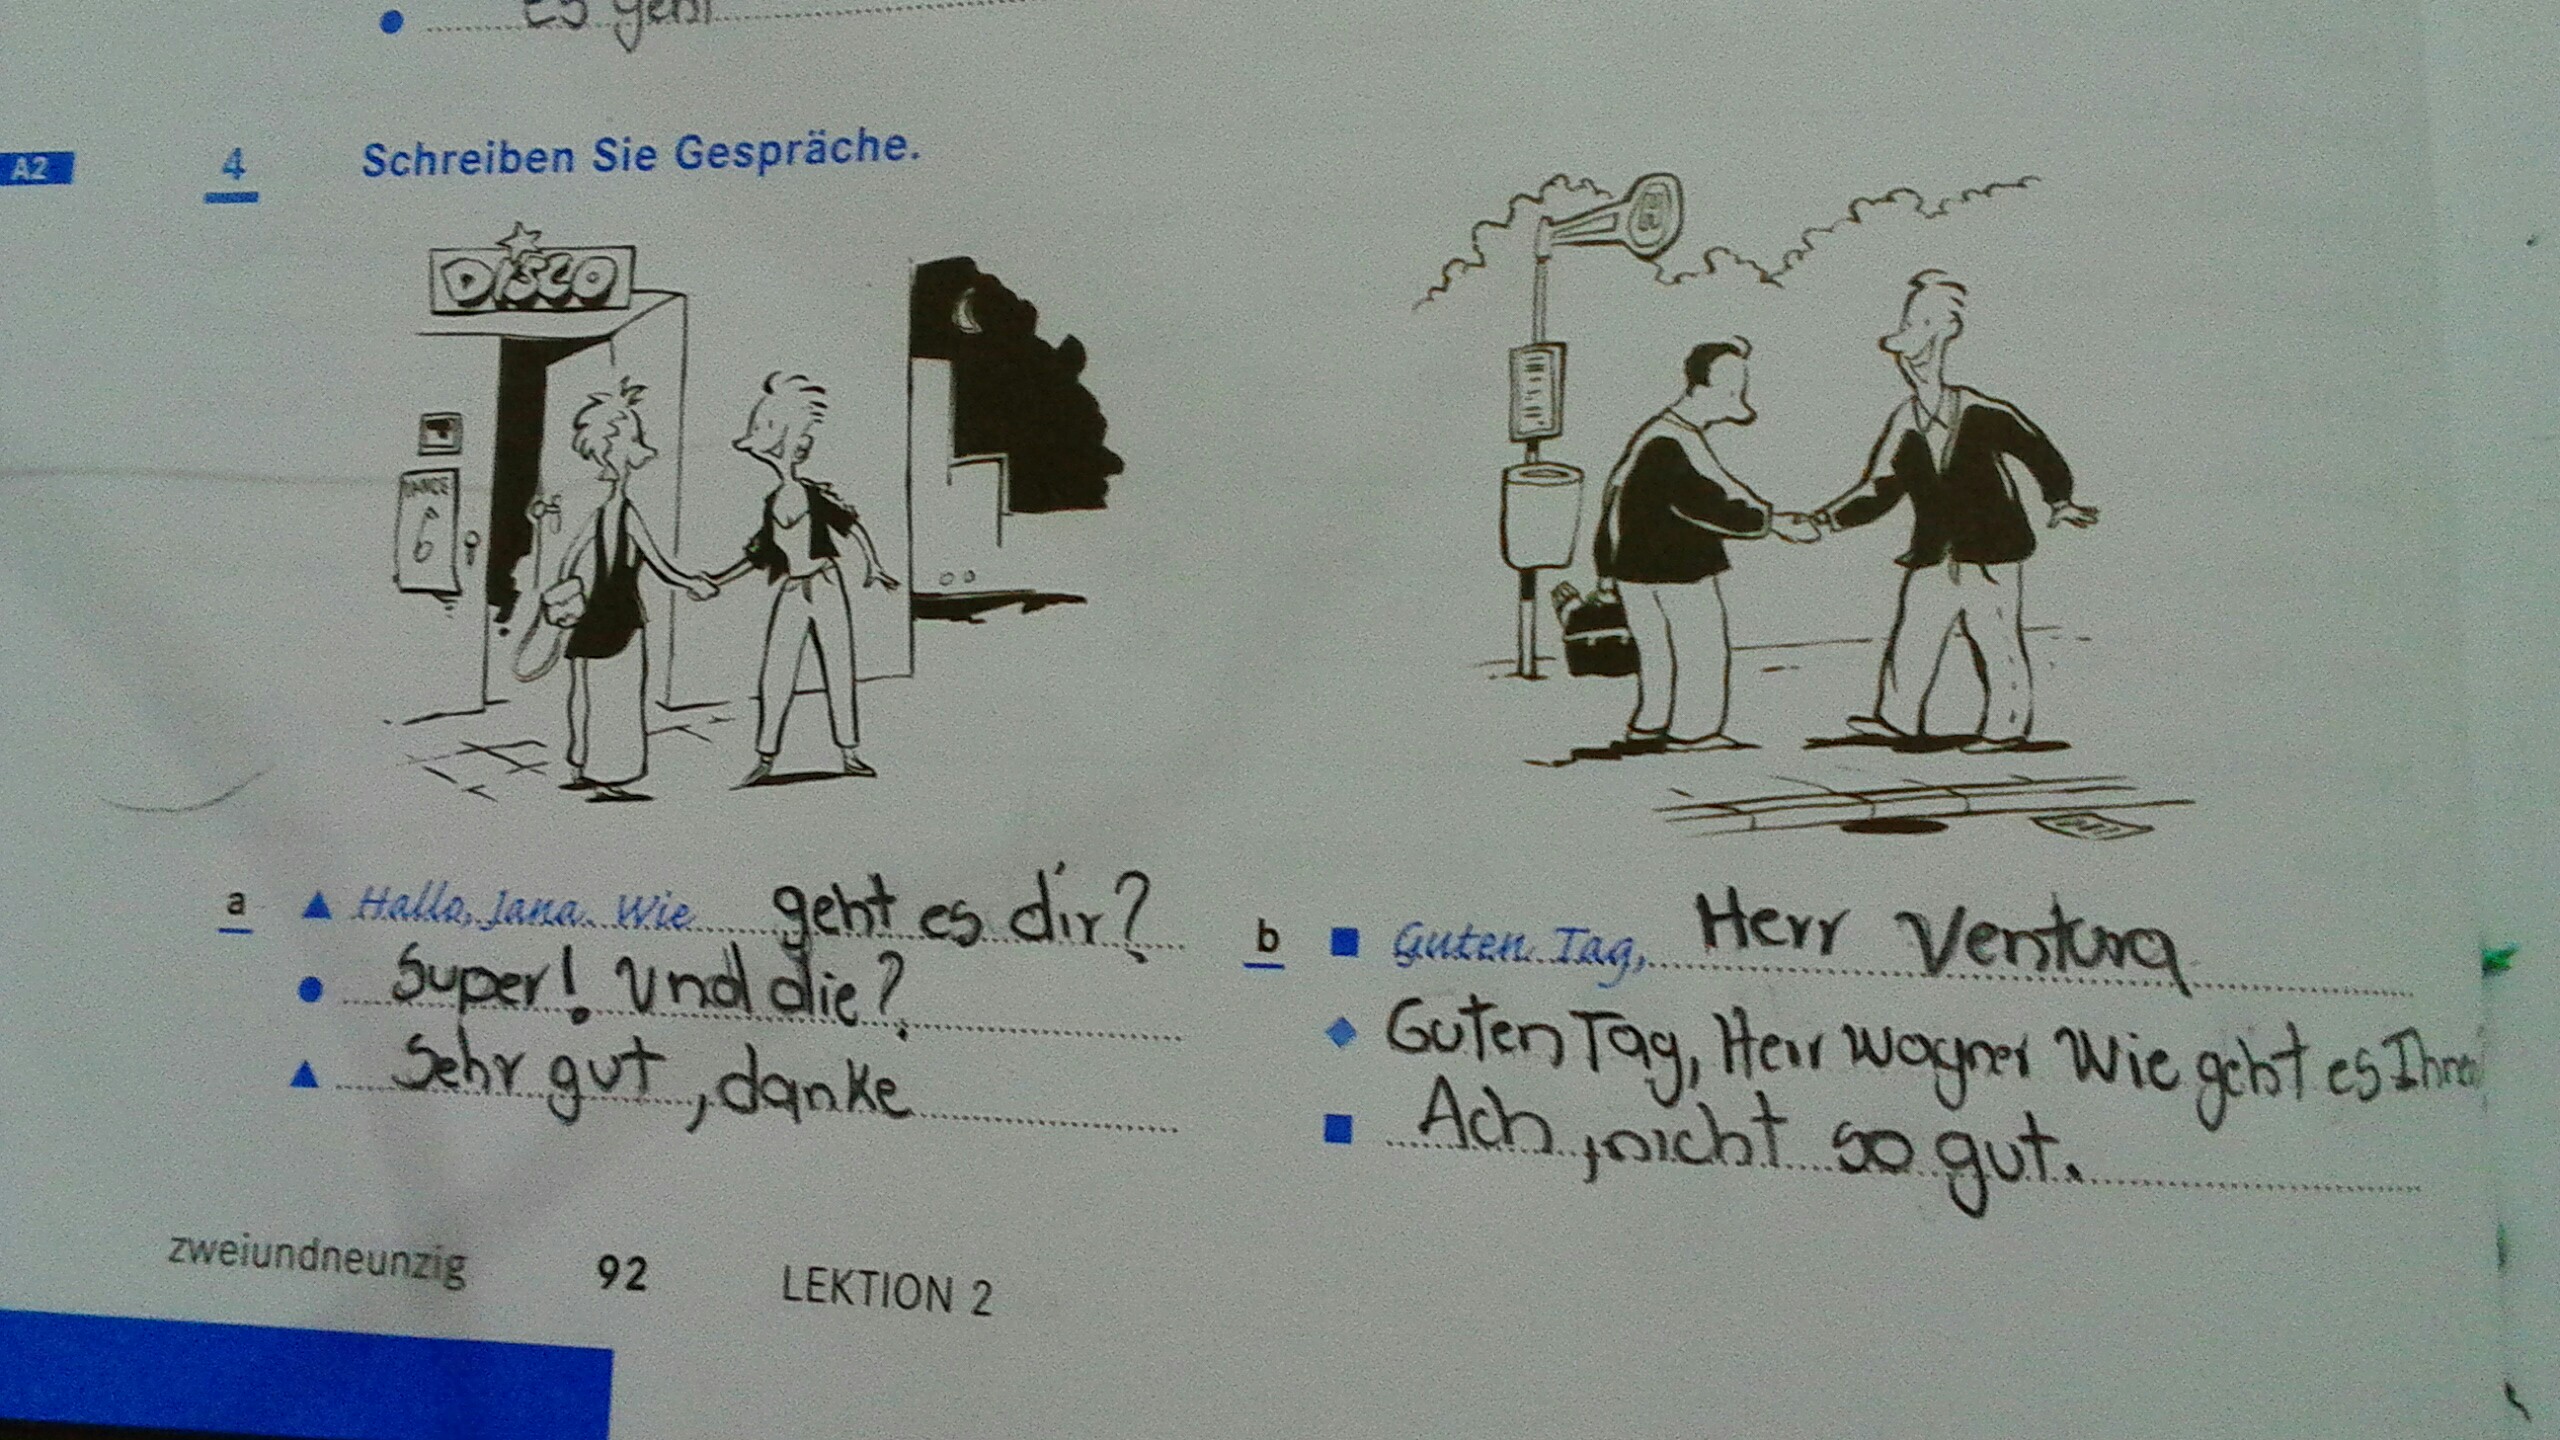 Es geht
A2 4 Schreiben Sie Gespräche.
DISCO
H
DANCE
6
a Hallo, Jana. Wie geht es dir?
Super! Und die?
Sehr gut, danke
b Guten Tag, Herr Ventura
Guten Tag, Herr Wagner Wie geht es Ihnen
Ach, nicht so gut.
zweiundneunzig 92 LEKTION 2